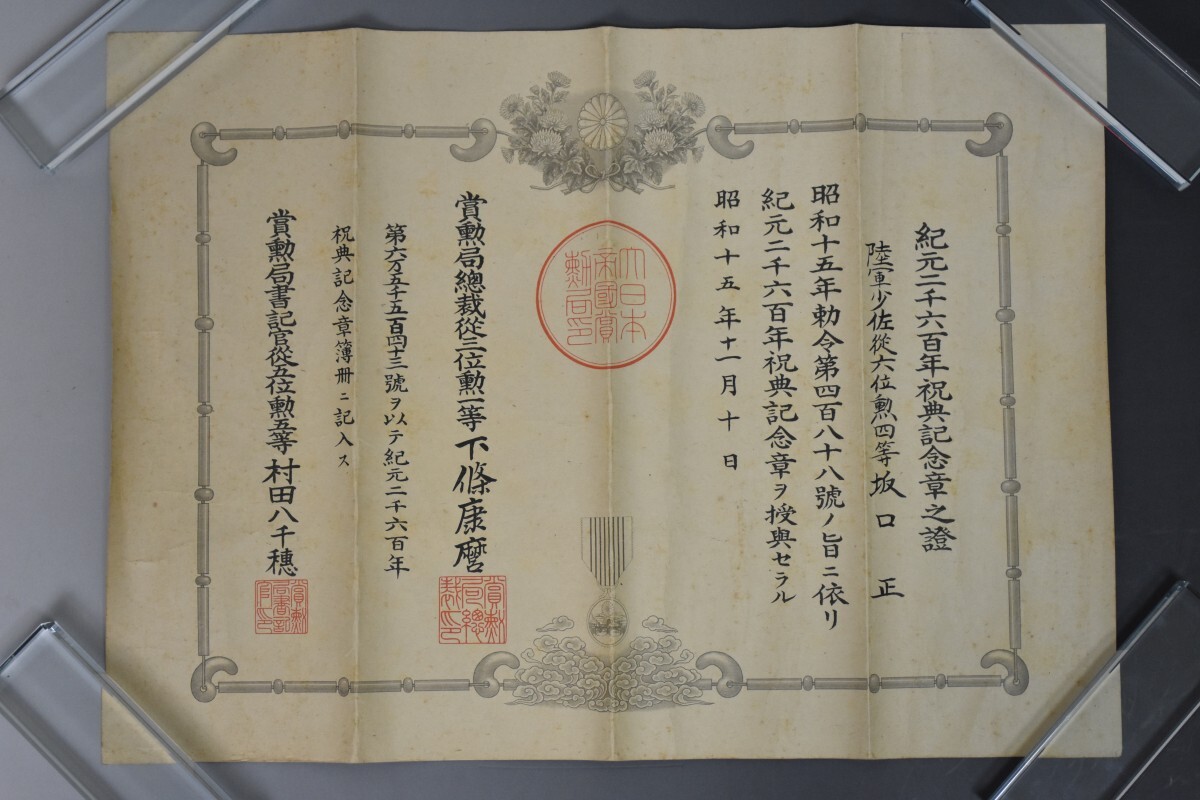 紀元二千六百年祝典記念章之證
陸軍少佐從六位勲四等坂口正
昭和十五年勅令第四百八十八號ノ旨ニ依リ
紀元二千六百年祝典記念章ヲ授與セラル
昭和十五年十一月十日
大日本帝國賞勲局印
賞勲局總裁從三位勲一等下條康麿
賞勲局總裁之印
第六万五千五百四十三號ヲ以テ紀元二千六百年
祝典記念章簿冊ニ記入ス
賞勲局書記官從五位勲五等村田八千穂
賞勲局書記官印